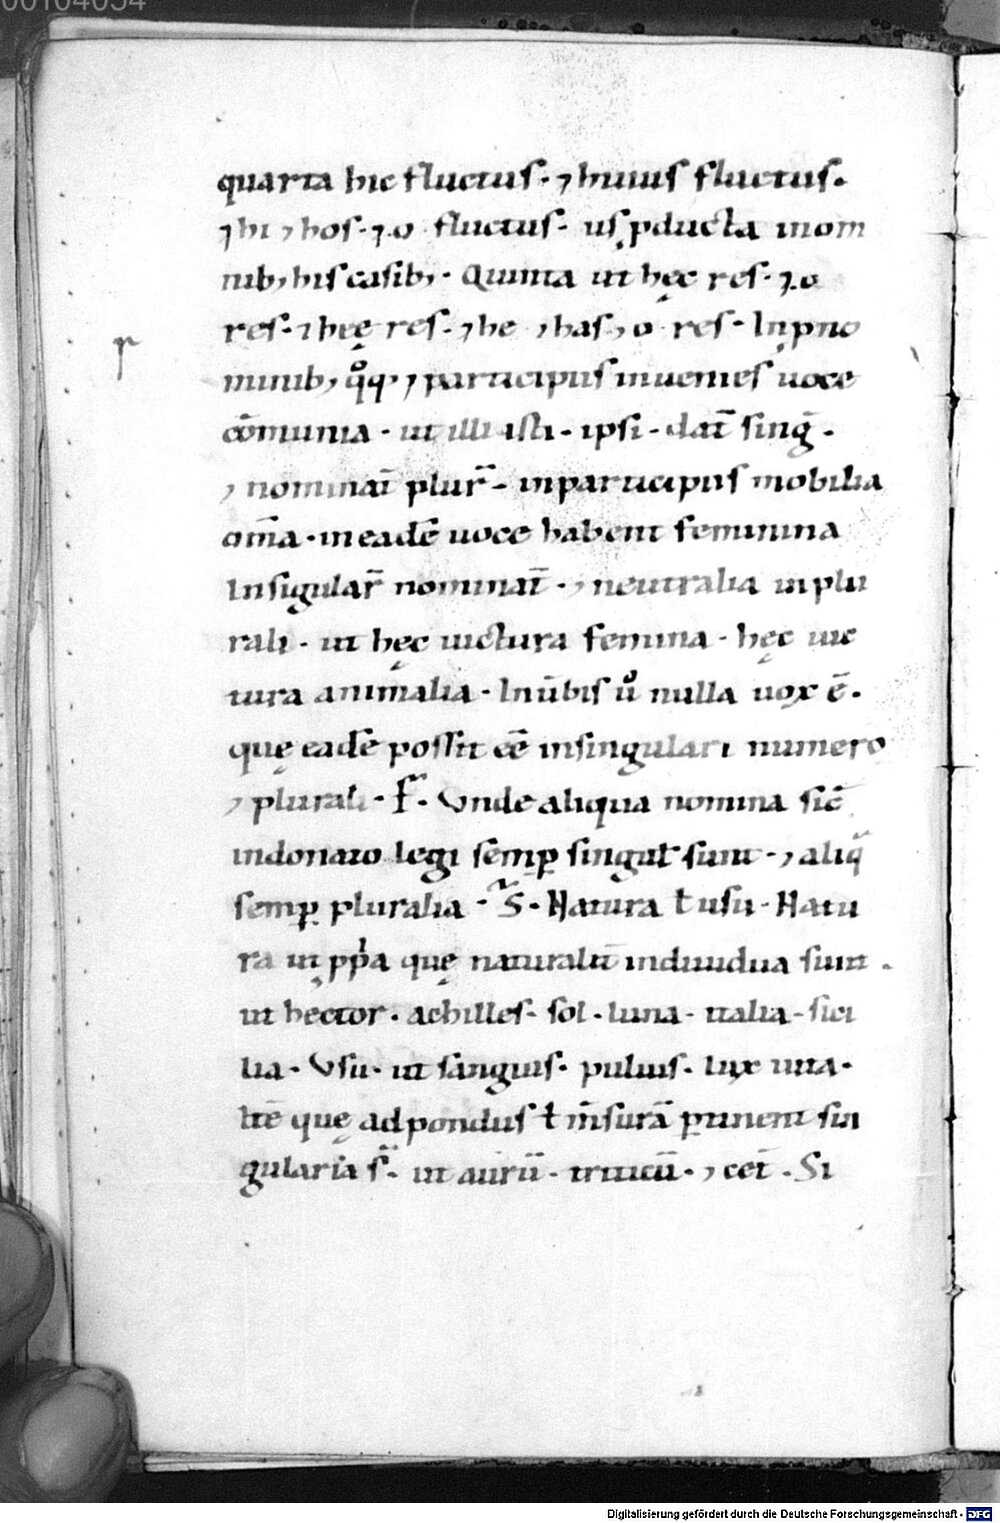 00104054
quarta hic fluctus · ⁊ huius fluctus ·
⁊ hi ⁊ hos · ⁊ o fluctus · us ꝓducta in om
nib; his casib; · Quinta ut hęc res · ⁊ o
res · ⁊ hęę res · ⁊ he ⁊ has ⁊ o res · In ꝓno
minib; qͦq; ⁊ participiis inuenies uoce
cōmunia · ut illi isti · ipsi · dat̄ sinḡ ·
⁊ nominat̄ plur̄ · in participiis mobilia
om̄a · in eadē uoce habent feminina
In sigular̄ nominat̄ · ⁊ neutralia in plu
rali · ut hęc uictura femina · hęc uic
tura animalia · In ūbis uͦ nulla uox ē ·
quę eadē possit eē in singulari numero
⁊ plurali · F̄ · Vnde aliqua nomina sic̄
in donato legi semꝑ singuł sunt · ⁊ aliq̄
semꝑ pluralia · S̄ · Natura ł usu · Natu
ra ut ꝓpͥa quę naturalit̄ indiuidua sunt ·
ut hector · achilles · sol · luna · italia · sici
lia · Vsu · ut sanguis · puluis · lux uita ·
Itē quę ad pondus ł m̄surā ꝑtinent sin
gularia s̄ · ut aurū · triticū · ⁊ cet̄ · Si
r
Digitalisierung gefördert durch die Deutsche Forschungsgemeinschaft - DFG
DFG